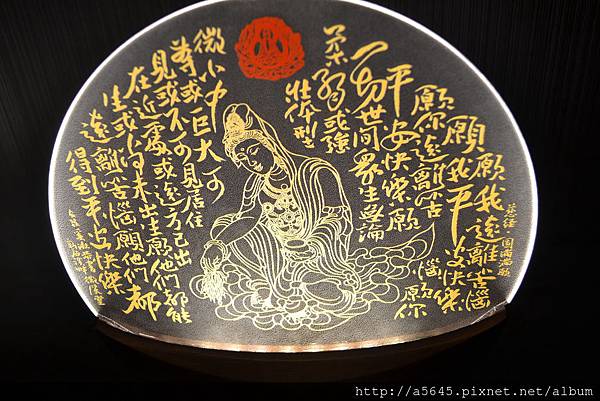 慈經
願我遠離苦惱
願我平安快樂
願你遠離苦惱願你
平安快樂願
一切世間眾生無論
柔弱或強
壯体型
微小中巨大可
見或不可見居住
在近處或遠方已出
生或尚未出生願他們都能
遠離苦惱願他們都
得到平安快樂
http://a5645.pixnet.net/album